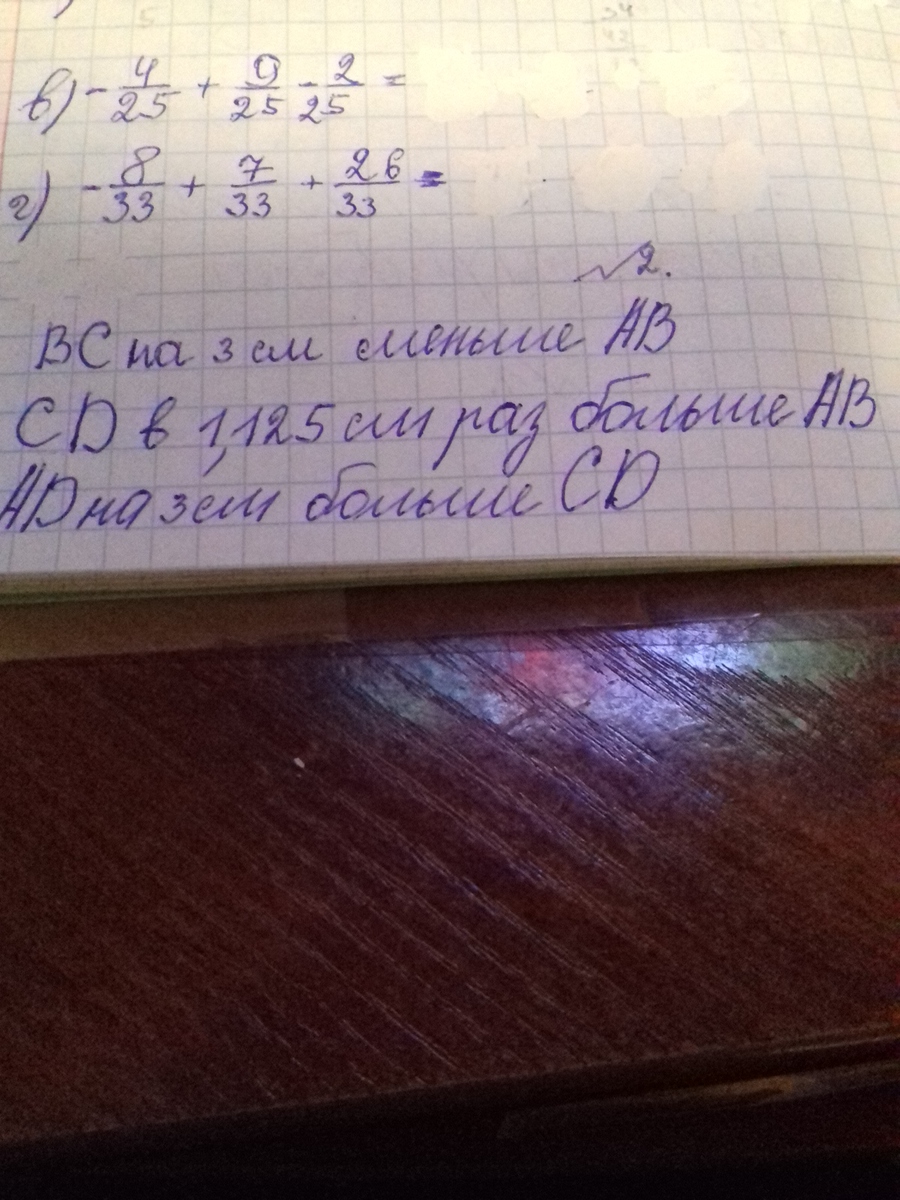 в) - 4/25 + 9/25 - 2/25 =
г) - 8/33 + 7/33 + 26/33 =
№2.
BC на 3 см меньше AB
CD в 1,125 см раз больше AB
AD на 3 см больше CD